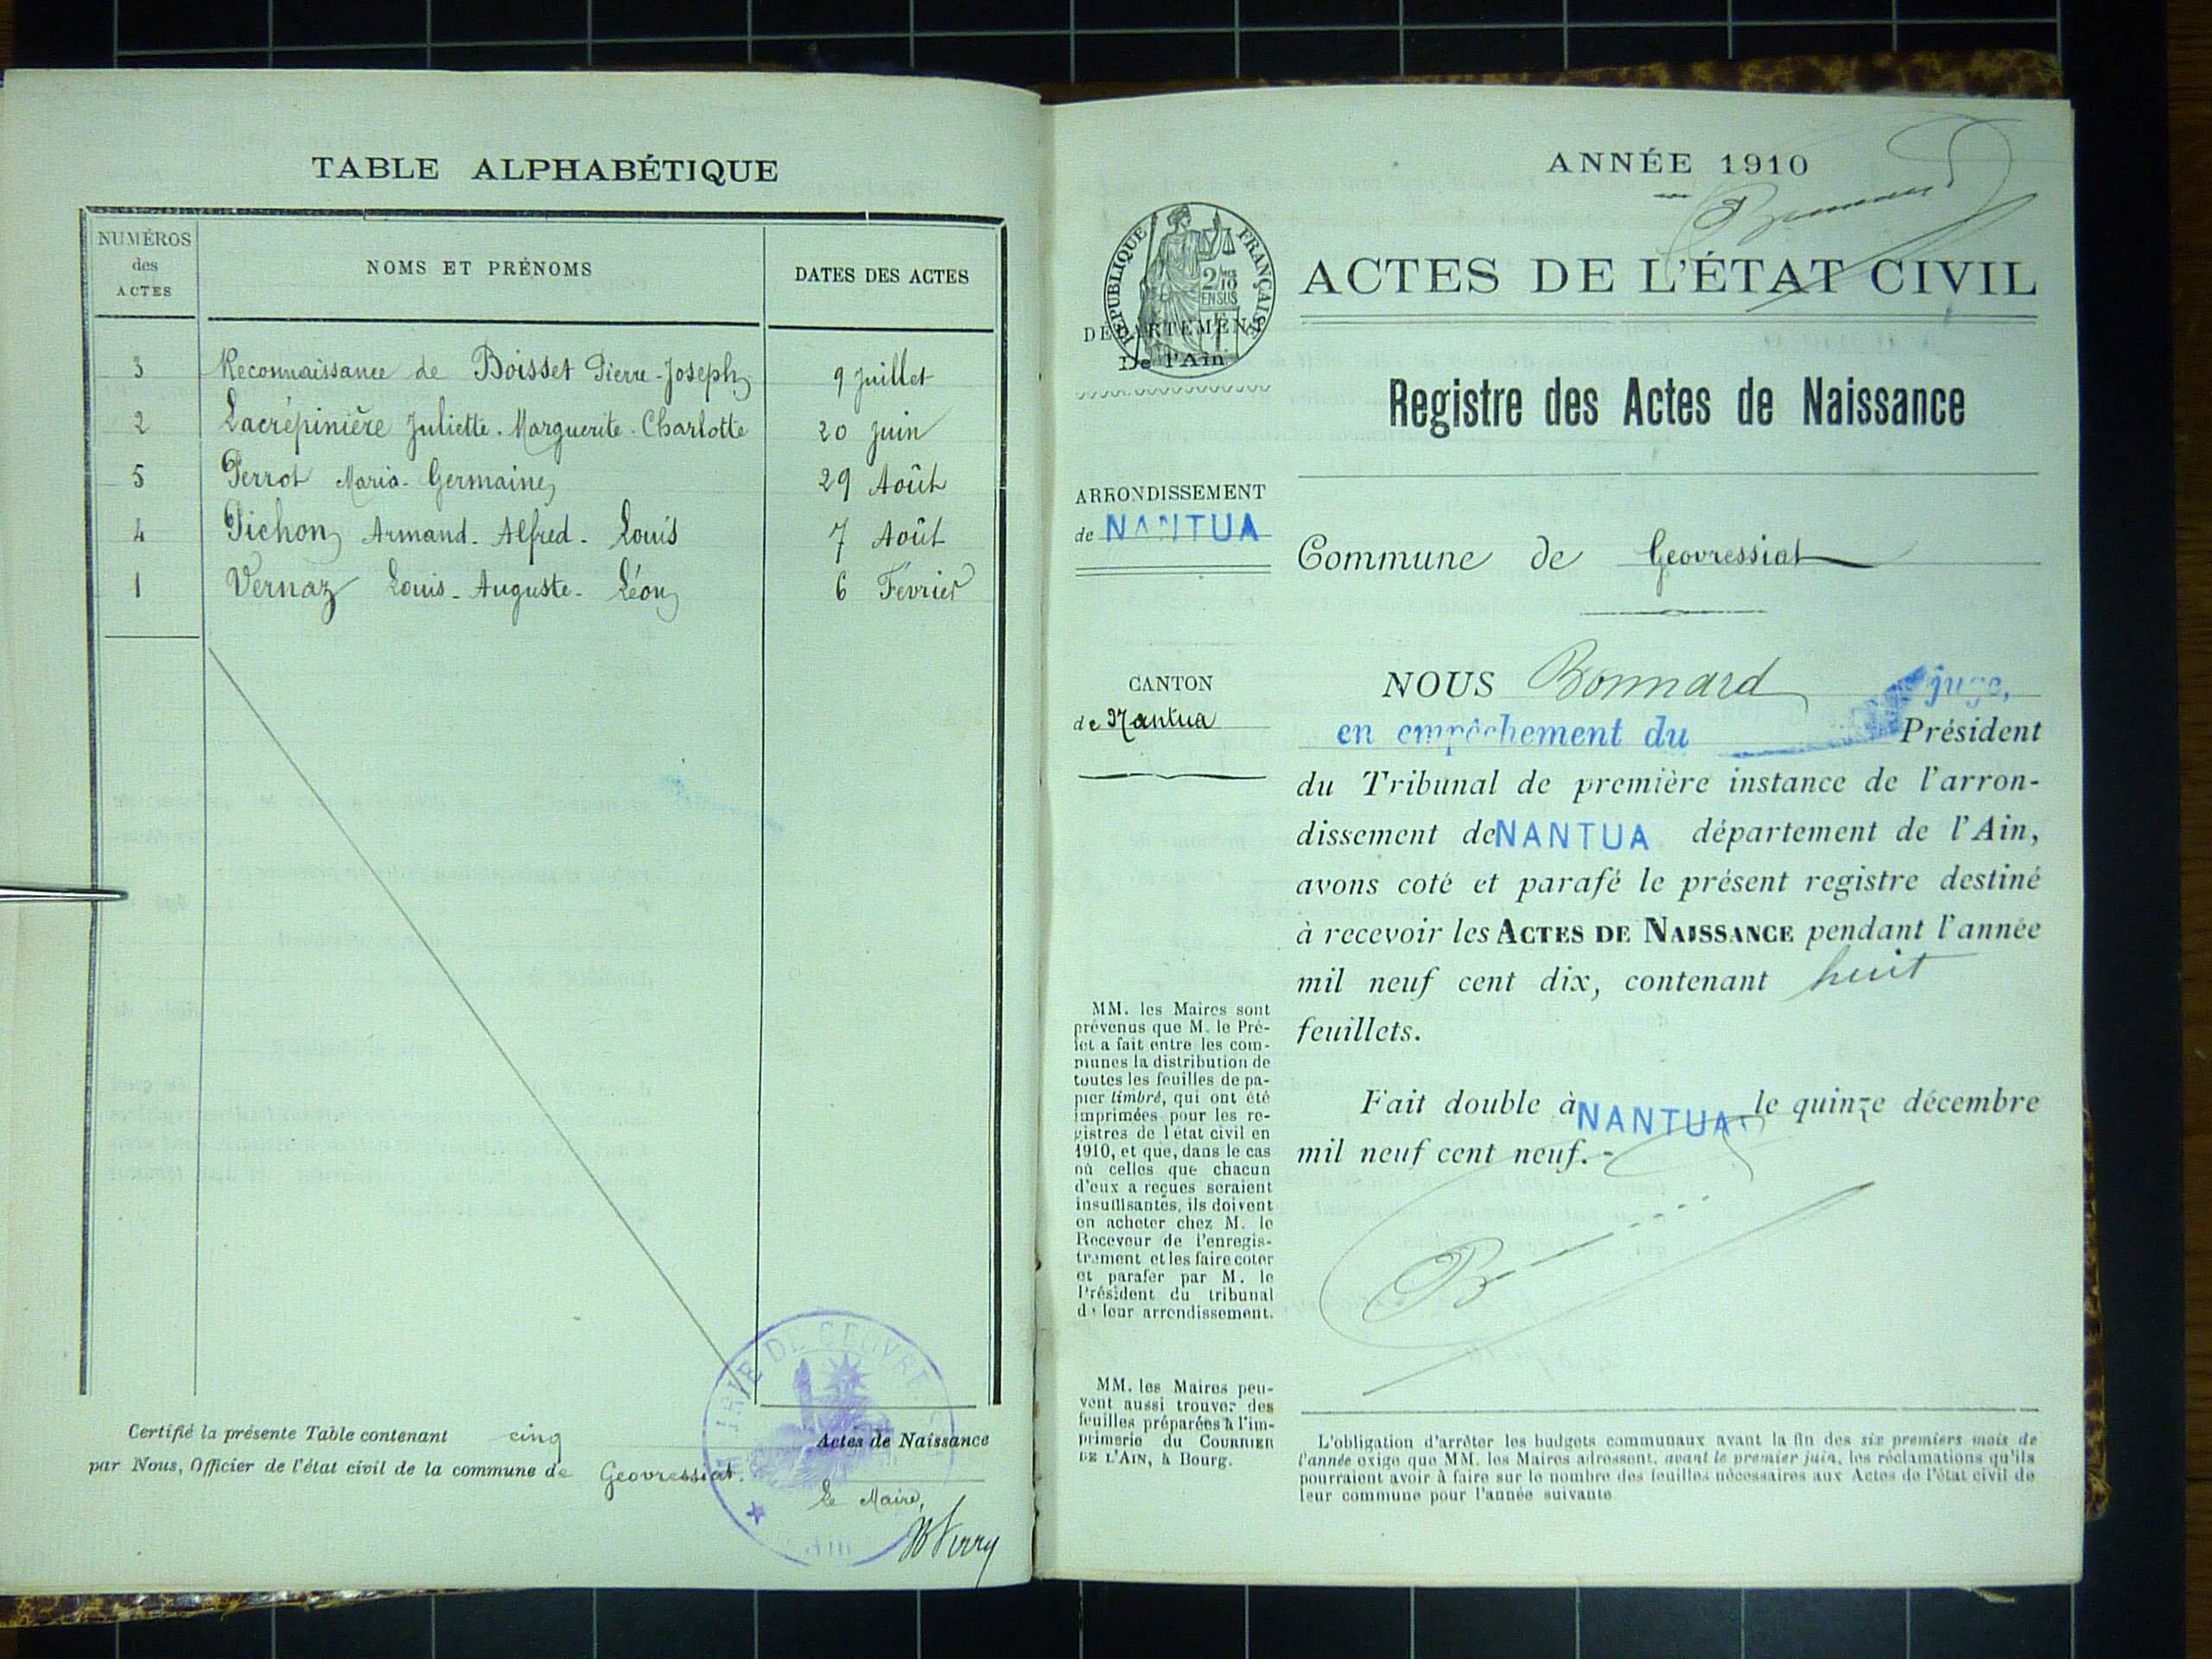 TABLE ALPHABÉTIQUE
NUMÉROS
des
ACTES
NOMS ET PRÉNOMS
DATES DES ACTES
3 Reconnaissance de Boisset Pierre-Joseph 9 Juillet
2 Lacrépinière Juliette-Marguerite-Charlotte 20 Juin
5 Perrot Maria-Germaine 29 Août
4 Pichon Armand-Alfred-Louis 7 Août
1 Vernaz Louis-Auguste-Léon 6 Février
Certifié la présente Table contenant cinq Actes de Naissance
par Nous, Officier de l'état civil de la commune de Geovressiat.
Le Maire,
ANNÉE 1910
RÉPUBLIQUE FRANÇAISE
2/10
EN SUS
ACTES DE L'ÉTAT CIVIL
DÉPARTEMENT
De l'Ain
Registre des Actes de Naissance
ARRONDISSEMENT
de NANTUA
Commune de Geovressiat
CANTON
de Nantua
NOUS Bonnard juge,
en empêchement du Président
du Tribunal de première instance de l'arron-
dissement de NANTUA département de l'Ain,
avons coté et parafé le présent registre destiné
à recevoir les ACTES DE NAISSANCE pendant l'année
mil neuf cent dix, contenant huit
feuillets.
Fait double à NANTUA le quinze décembre
mil neuf cent neuf.
MM. les Maires sont
prévenus que M. le Pré-
fet a fait entre les com-
munes la distribution de
toutes les feuilles de pa-
pier timbré, qui ont été
imprimées pour les re-
gistres de l'état civil en
1910, et que, dans le cas
où celles que chacun
d'eux a reçues seraient
insuffisantes, ils doivent
en acheter chez M. le
Receveur de l'enregis-
trement et les faire coter
et parafer par M. le
Président du tribunal
de leur arrondissement.
MM. les Maires peu-
vent aussi trouver des
feuilles préparées à l'im-
primerie du COURRIER
DE L'AIN, à Bourg.
L'obligation d'arrêter les budgets communaux avant la fin des six premiers mois de
l'année exige que MM. les Maires adressent, avant le premier juin, les réclamations qu'ils
pourraient avoir à faire sur le nombre des feuilles nécessaires aux Actes de l'état civil de
leur commune pour l'année suivante